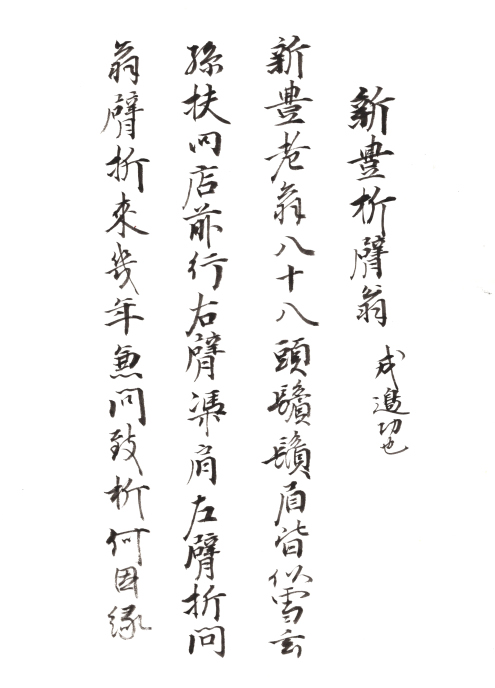 新豊折臂翁 戒邊功也
新豊老翁八十八頭鬢鬚眉皆似雪玄
孫扶向店前行右臂憑肩左臂折問
翁臂折來幾年兼問致折何因縁